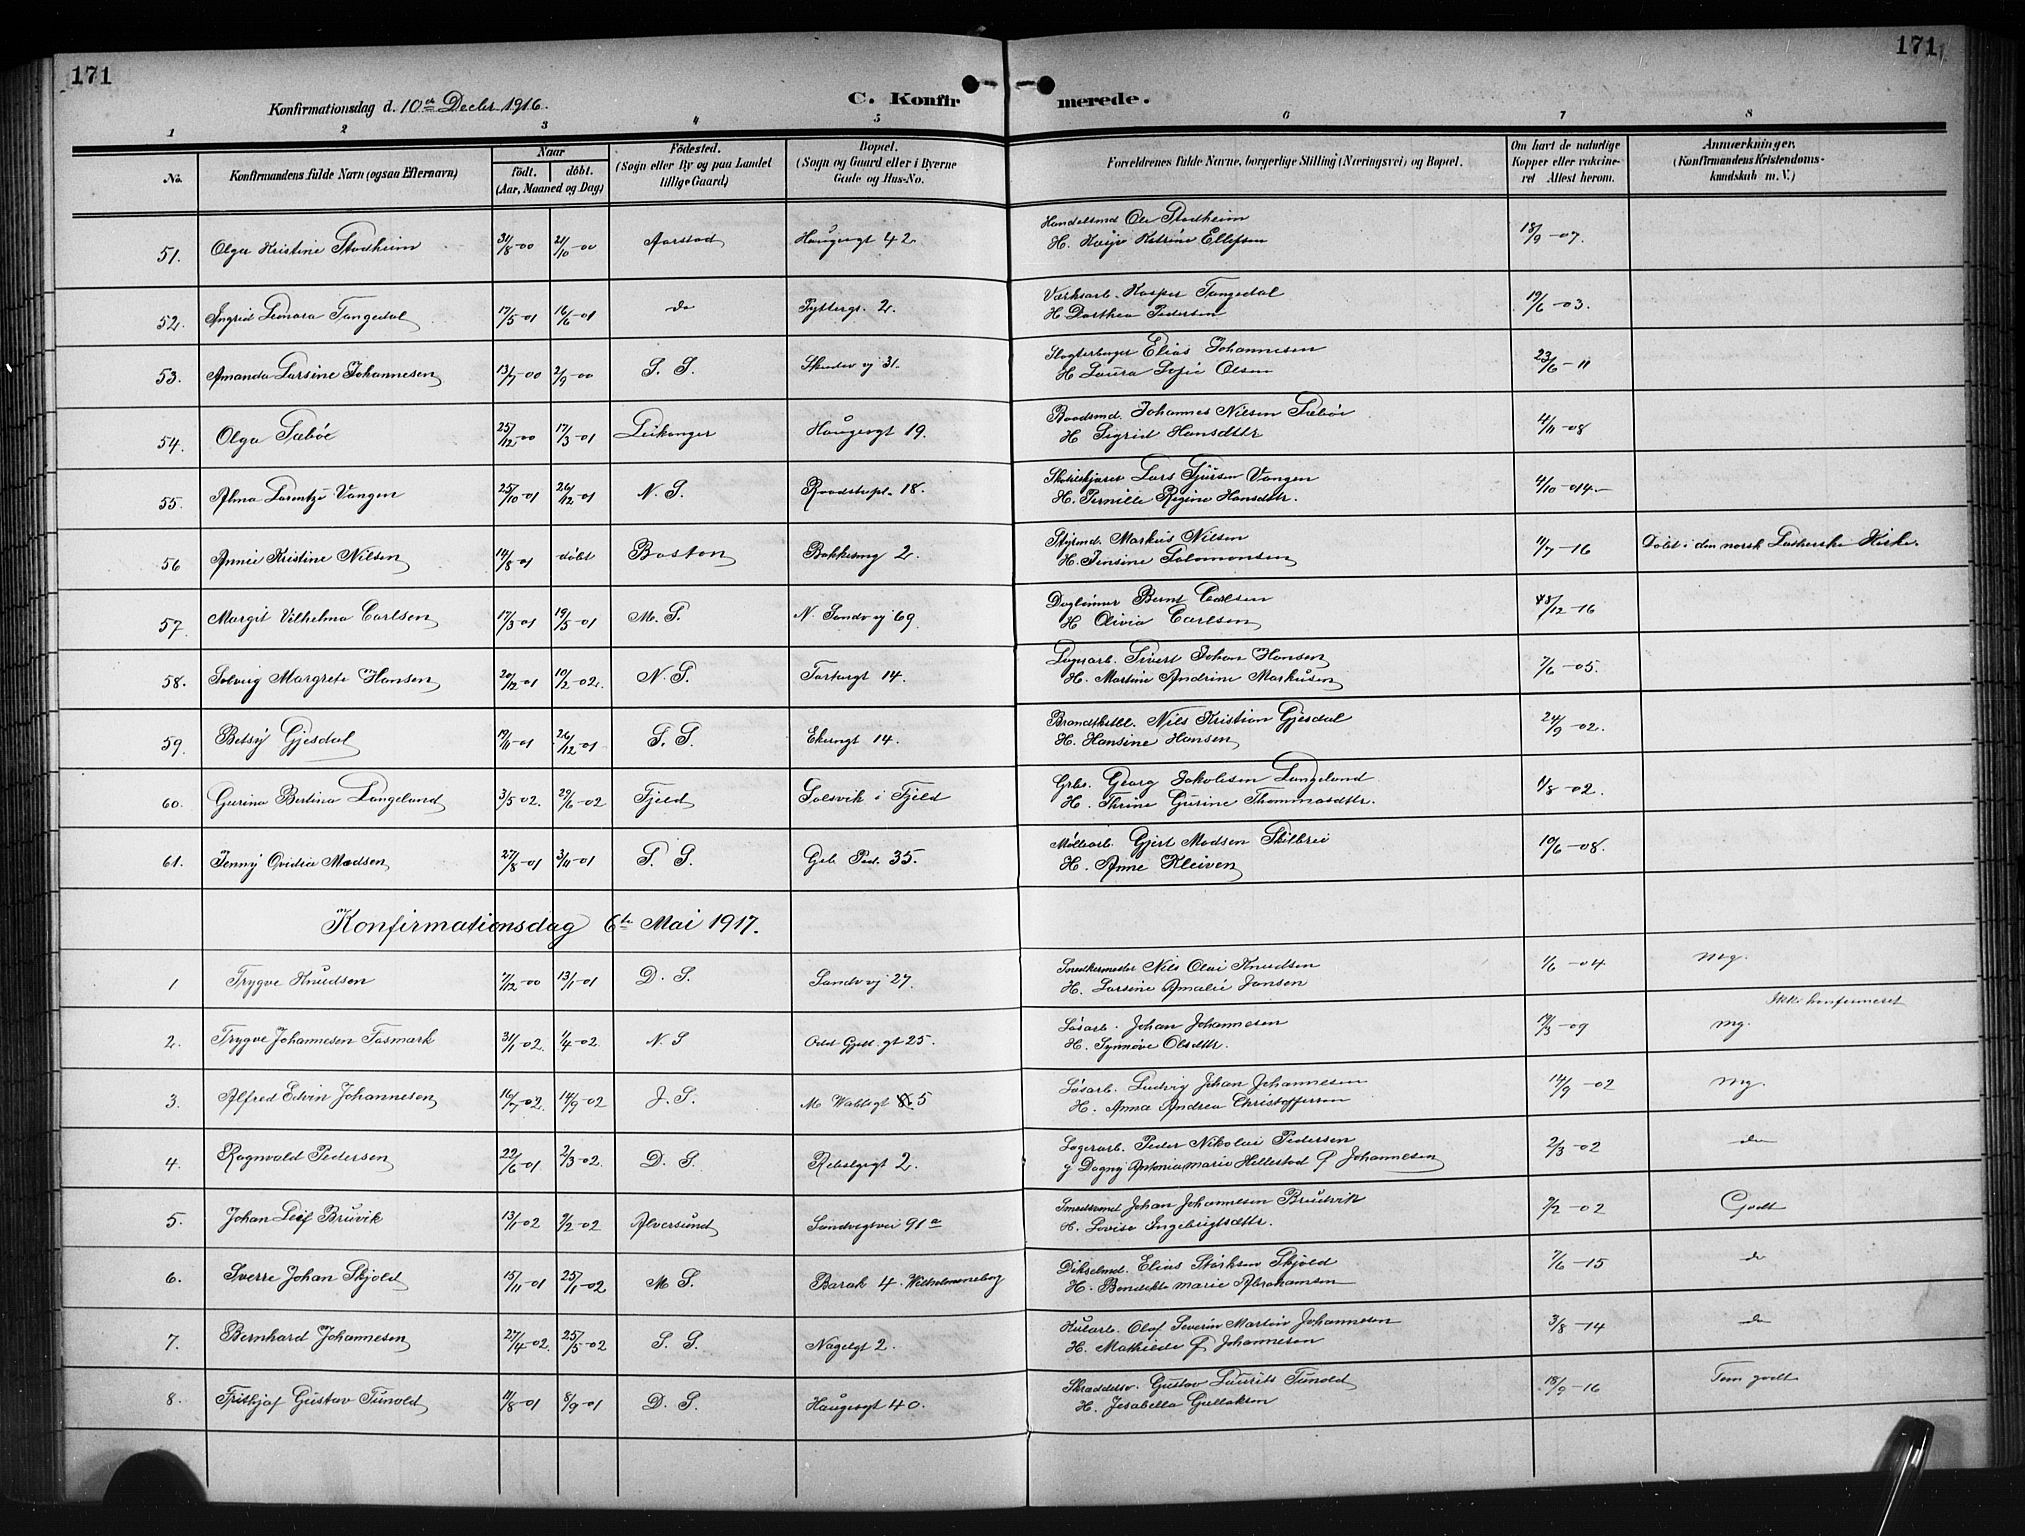 171
171
Konfirmationsdag d. 10de Decbr. 1916.
C. Konfirmerede.
1 2 3 4 5 6 7 8
No. Konfirmandens fulde Navn (ogsaa Efternavn) Naar født. døbt. (Aar, Maaned og Dag) Fødested. (Sogn eller By og paa Landet tillige Gaard) Bopæl. (Sogn og Gaard eller i Byerne Gade og Hus-No. Forældrenes fulde Navne, borgerlige Stilling (Næringsvei) og Bopæl. Om havt de naturlige Kopper eller vakcineret Attest herom. Anmærkninger. (Konfirmandens Kristendomskundskab m. V.)
51. Olga Kristine Stadheim 31/8-00 21/10-00 Aarstad Haugevgt 42 Handelsmd Ole Stadheim
H. Katrine Ellefsen 18/9-07.
52. Ingrid Leonara Tangedal 17/5-01 16/6-01 do 2. Værksarb. Kasper Tangedal
H. Dorthea Pedersen 19/6-03.
53. Amanda Larsine Johannesen 13/7-00 2/9-00 S. S. 31. Elias Johannesen
H Laura Sofie Olsen 23/6-11
54. Olga Sæbøe 25/12-00 17/3-01 Leikanger Haugevgt 19. Baadsmd. Johannes Nilsen Sæbøe
H Sigrid Hansdttr 4/11-08
55. Alma Lorentze Vangen 25/10-01 26/12-01 N. S. Raadstupl. 18. Lars Vangen
H. Pernille Regine Hansdttr. 4/10-014
56 Annie Kristine Nilsen 14/8-01 døbt Boston Bakkesmg 2. Styrmd. Markus Nilsen
H. Jensine Salomonsen 11/7-16 Døbt i den norsk Lutherske Kirke.
57. Margit Vilhelma Carlsen 17/3-01 19/5-01 M. S. N. Sandv vj 69. Bernt Carlsen
H Olivia Carlsen 18/12-16
58. Solveig Margrete Hansen 20/12-01 10/2-02. N. S. Tartargt 14. Dagsarb. Sivert Johan Hansen
H. Martine Andrine Markusen 7/6-05.
59. Betsy Gjesdal 19/11-01 26/12-01 S. S. Ekrengt 14. Nils Kristian Gjesdal
H. Hansine Hansen 24/9-02.
60. Gurina Bertina Langeland 3/5 02. 29/6-02 Fjeld Solsvik i Fjeld Grbr. Georg Jakobsen Langeland
H. Thrine Gurine Thommasdttr. 1/8-02.
61. Jenny Ovidia Madsen 27/8-01 3/11-01 S. S. Geb. Pad. 35. Møllearb. Gjert Madsen Skilbrei
H. Anne Kleiven 10/6-08.
Konfirmationsdag 6te Mai 1917.
1 Trygve Knudsen 7/12-00 13/1-01 D. S. Sandv vj 27. Snedkermester Nils Olai Knudsen
H. Larsine Amalie Jansen 1/6-04 mg.
Ikke konfirmeret
2. Trygve Johannesen Fosmark 31/1-02. 1/4-02. N. S Odd Gjelt. gt 25. Løsarb. Johan Johannesen
H. Synnøve Olsdttr. 19/3-09 mg.
3. Alfred Edvin Johannesen 16/7-02. 14/9-02 J. S. 5 Løsarb. Ludvig Johan Johannesen
H. Anna Andrea Christoffersen 14/9-02 mg.
4. Ragnvald Pedersen 22/6-01 2/3-02. D. S. 2. Lagerarb. Peder Nikolai Pedersen
g Dagny Antonia Marie Hellestad f Johannesen 2/3-02 do
5. Johan Leif Bruvik 13/1-02 9/2-02 Alversund Sandvigsvei 91a Johan Johannesen Bruvik
H. Lovise Ingebrigtsdttr. 9/2-02 Godt
6. Sverre Johan Skjold 15/11-01 25/1-02 M S. Barak 4. Wilhelmineborg Elias Størksen Skjold
H. Bendikte Marie Abrahamsen 7/6-15 do
7. Bernhard Johannesen 27/4-02. 25/5-02 S. S. Nagelgt 2. Olaf Severin Martin Johannesen
H. Mathilde f Johannesen 3/8-14 do
8. Frithjof Gustav Tunold 11/8-01 8/9-01 D. S. Haugevgt 40. Gustav Laurits Tunold
H. Jesabella Gullaksen 18/9-16 Tem godt